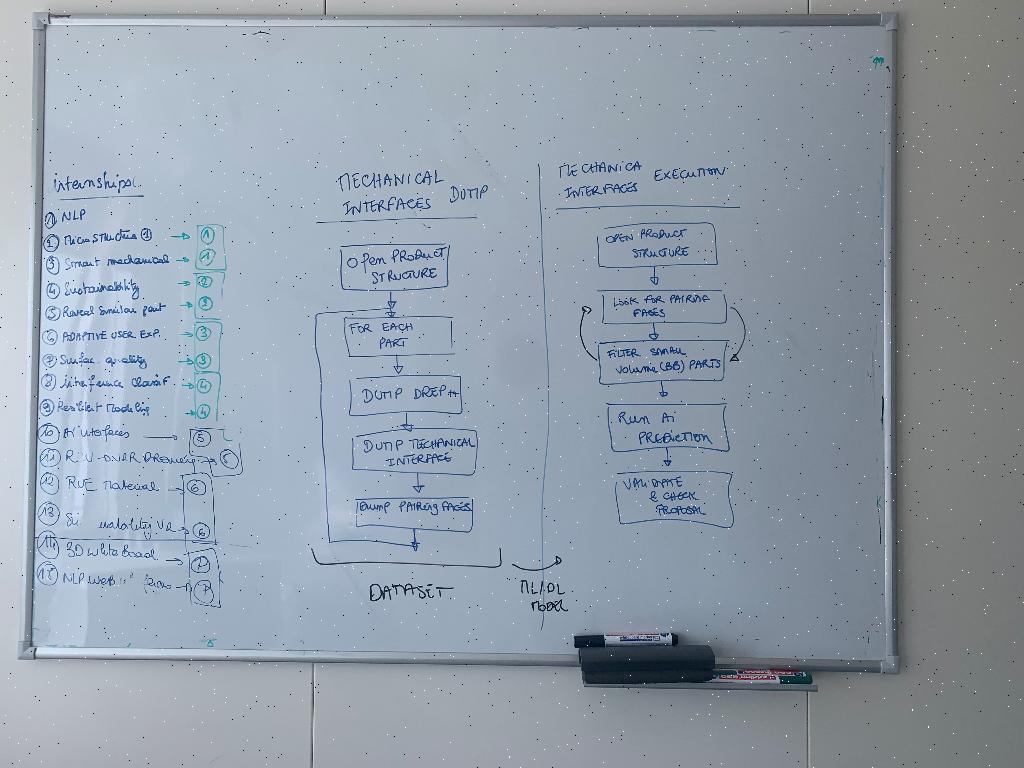 internships
① NLP
② MicroStructure ①
→ ①
③ Smart mechanical → ①
④ Sustainability → 2
⑤ Reveal similar part → ②
⑥ ADAPTIVE USER EXP. → ③
⑦ Surfac. quality → ③
⑧ interference classif. → ④
⑨ Resilient Modeling → ④
⑩ interfaces → ⑤
⑪
⑫ material → ⑥
⑬ VR → ⑥
⑭ 3D whiteboard → ⑦
⑮ NLP web → ⑦
MECHANICAL
INTERFACES DUMP
OPEN PRODUCT
STRUCTURE
FOR EACH
PART
DUMP DREP
DUMP MECHANICAL
INTERFACE
DUMP PAIRING FACES
DATASET
ML/DL
MODEL
MECHANICA
INTERFACES EXECUTION
OPEN PRODUCT
STRUCTURE
LOOK FOR PAIRING
FACES
FILTER SMALL
VOLUME (BB) PARTS
RUN Ai
PREDICTION
VALIDATE
& CHECK
PROPOSAL